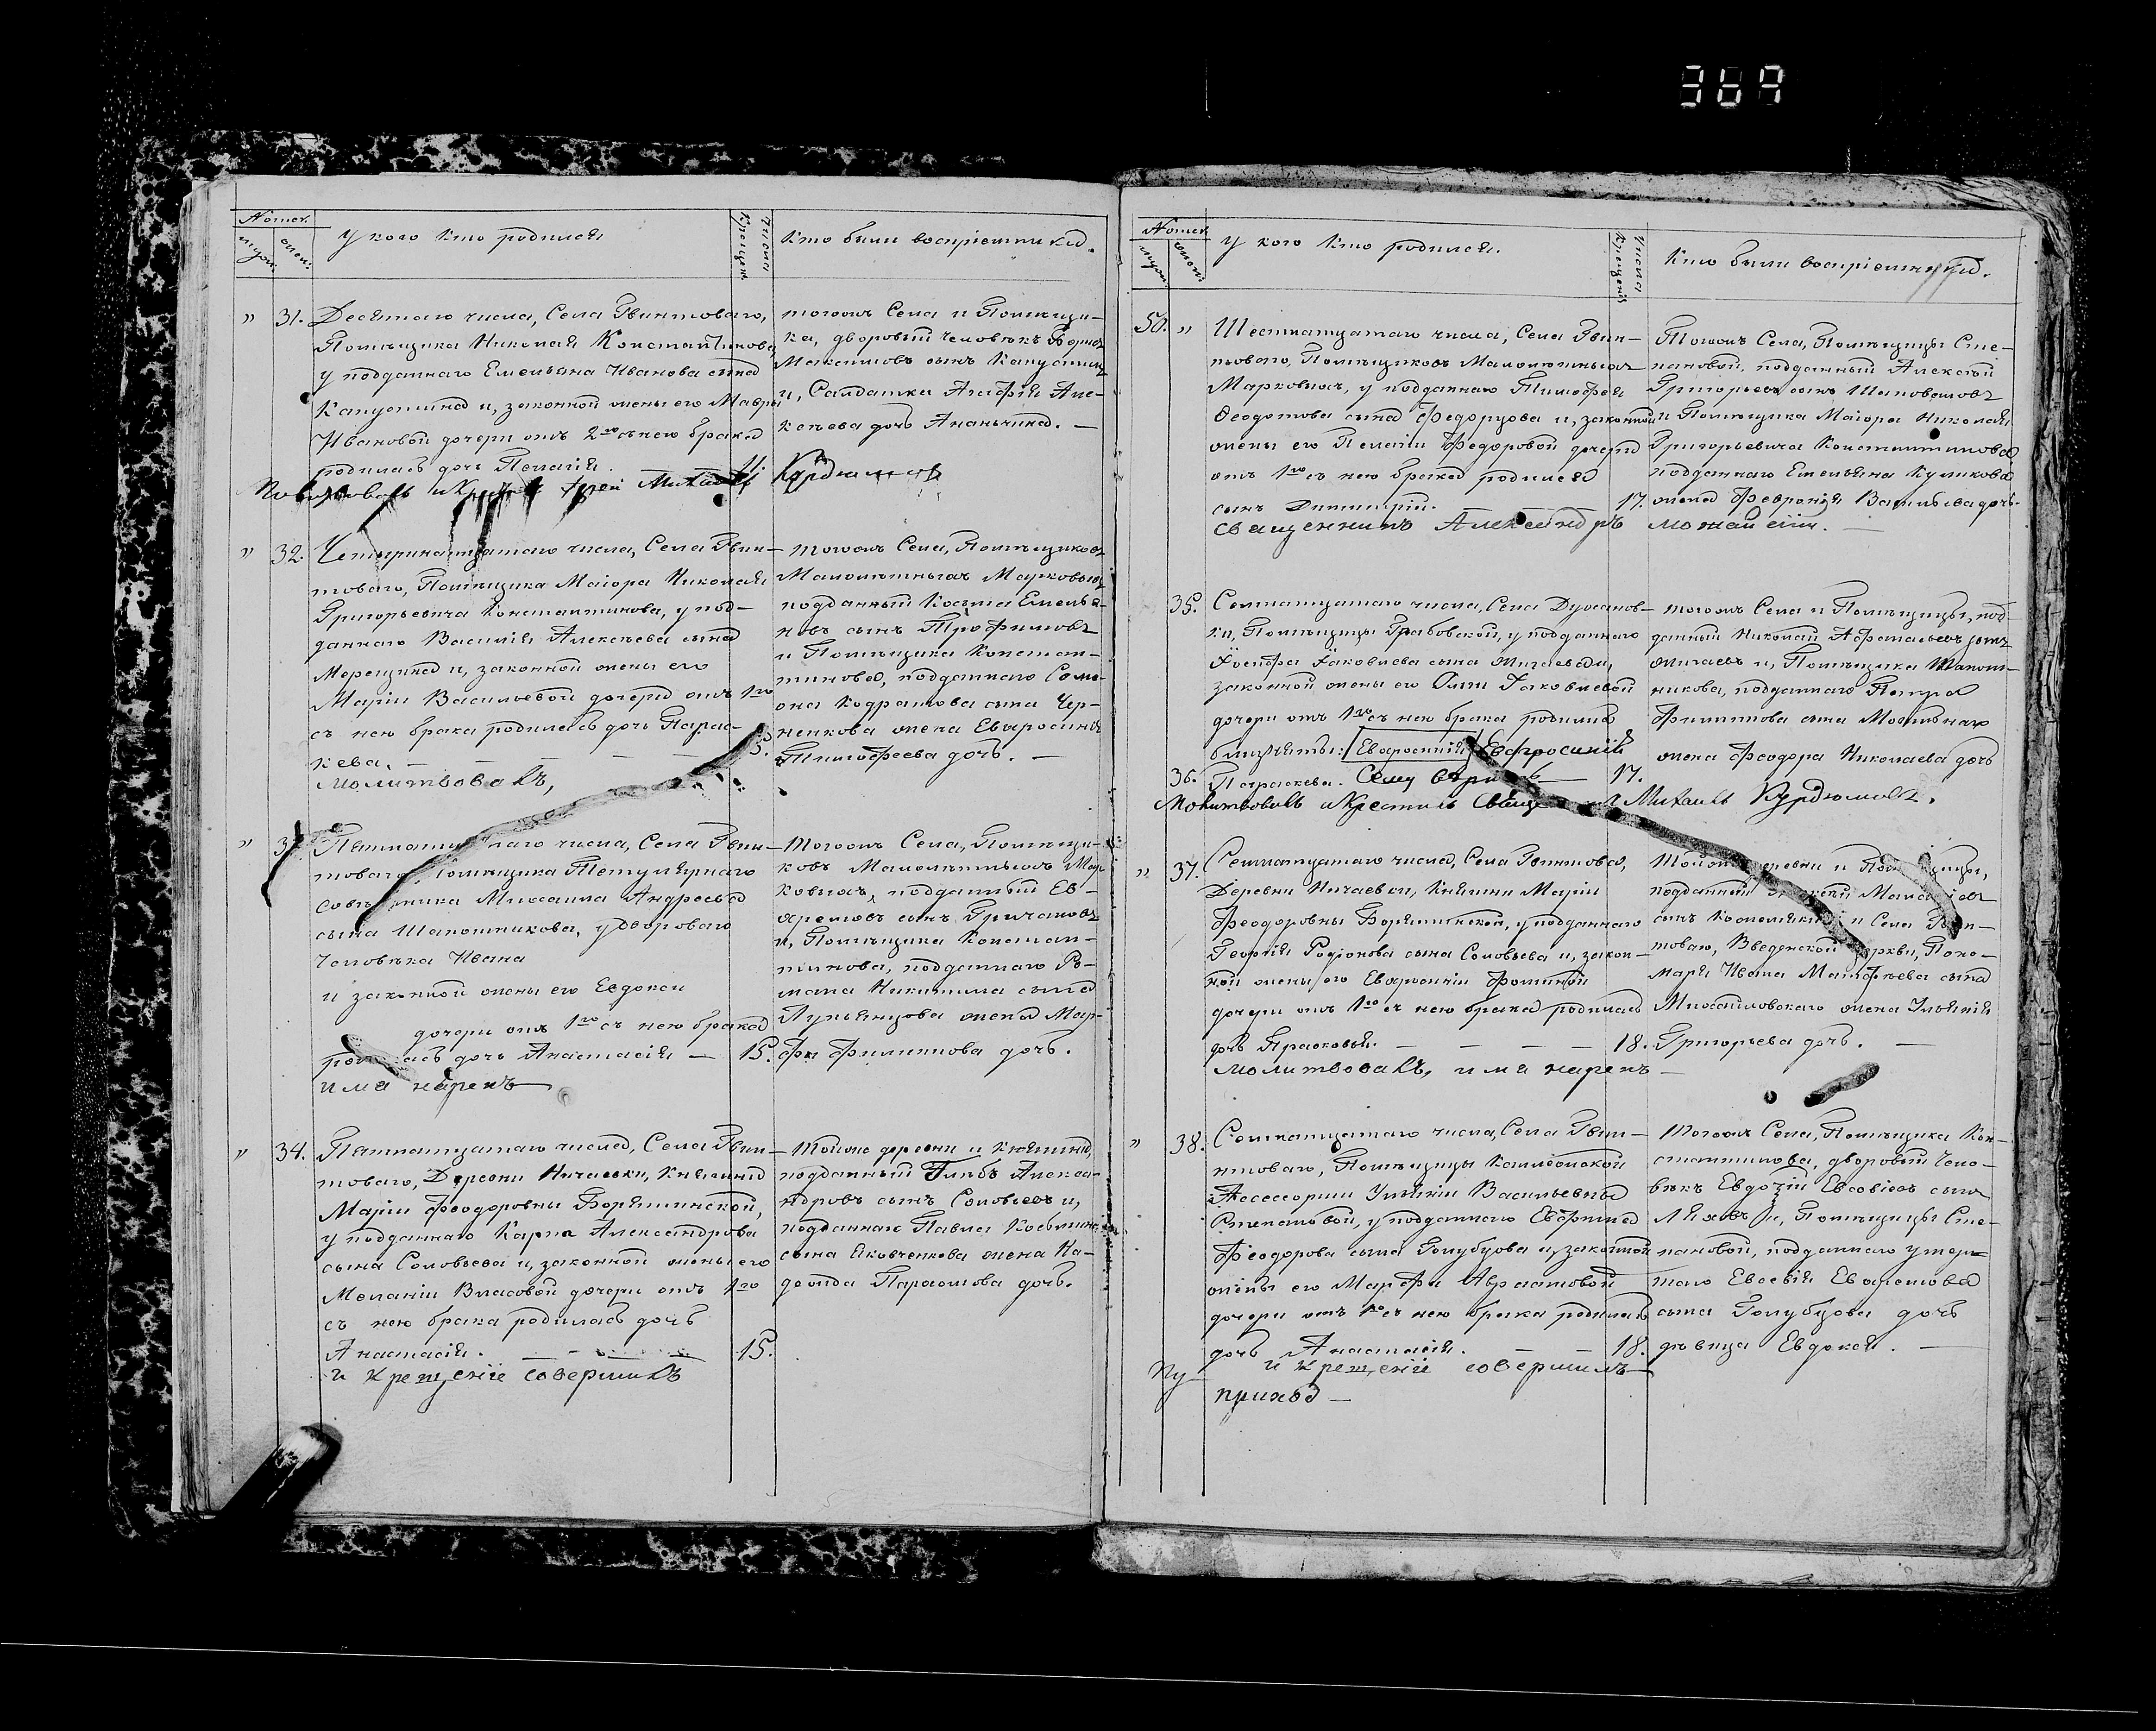 367
Номер.
муж. жен:
У кого кто родился
Числа Крещенія
Кто были воспріемники.
„ 31. Десятаго числа, Села Гвинтоваго,
Помѣщика Николая Константинова,
у подданнаго Емельяна Иванова сына
Капустина и, законной жены его Мавры
Ивановой дочери отъ 2го съ нею брака
родилась дочь Пелагія. 11.
тогожъ Села и Помѣщи-
ка, дворовый человѣкъ
Максимовъ сынъ Капустинъ
и, Салдатка Агафія Але-
ксѣева дочь Ананьина. —
Молитвовалъ и Іерей Михаилъ Курдюмовъ
„ 32. Четырнатцатаго числа, Села Гвин-
товаго, Помѣщика Маіора Николая
Григорьевича Константинова, у под-
даннаго Василія Алексѣева сына
Мерещина и, законной жены его
Маріи Васильевой дочери отъ 1го
съ нею брака родилась дочь Парас-
кева. — — — —
тогожъ Села, Помѣщиковъ
Малолѣтныхъ Марковыхъ
подданный Косма Емелья-
новъ сынъ Трофимовъ
и Помѣщика Констан-
тинова, подданнаго Сама-
она Кодратова сына Чер-
ненкова жена Евфросинія
Тимофеева дочь. —
молитвовалъ,
„ 33. числа, Села Гвин-
товаго, Помѣщика Титулярнаго
Михаила Андреева
сына Шапошникова, у двороваго
человѣка Ивана
и законной жены его Евдокеи
дочери отъ 1го съ нею брака
родилась дочь Анастасія — 15.
тогожъ Села, Помѣщи-
ковъ Малолѣтныхъ Мар-
ковыхъ, подданный Ев-
фремовъ сынъ Гричановъ
и, Помѣщика Констан-
тинова, подданнаго Ро-
мана Никитина сына
Лукьянцова жена Мар-
фа Филиппова дочь.
имя нарекъ —
„ 34. Пятнатцатаго числа, Села Гвин-
товаго, Деревни Ничаевки, Княжны
Маріи Феодоровны Борятинской,
у подданнаго Карпа Александрова
сына Соловьева и, законной жены его
Меланіи Власовой дочери отъ 1го
съ нею брака родилась дочь
Анастасія. — — — 15.
тойже деревни и Княжны,
подданный Глѣбъ Алекса-
ндровъ сынъ Соловьевъ и,
подданнаго Павла Космина
сына Яковченкова жена На-
дежда Парфомова дочь.
и крещеніе совершилъ
Номер.
муж. женс:
У кого кто родился.
Числа Крещенія
Кто были воспріемники.
50. „ Шестнатцатаго числа, Села Гвин-
товаго, Помѣщиковъ Малолѣтныхъ
Марковыхъ, у подданнаго Тимофея
Феодотова сына Федорцова и, законной
жены его Пелагіи Федоровой дочери
отъ 1го съ нею брака родился
сынъ Димитрій. — 17.
Тогожъ Села, Помѣщицы Сте-
пановой, подданный Алексѣй
Григорьевъ сынъ Шаповаловъ
и Помѣщика Маіора Николая
Григорьевича Константинова
подданнаго Емельяна Куликова
жена Февронія Васильева дочь.
священникъ Александръ
35. Семнатцатаго числа, Села Духанов-
ки, Помѣщицы Грабовской, у подданнаго
Іосифа Іаковлева сына и,
законной жены его Іаковлевой
дочери отъ 1го съ нею брака родились
близняты: Евфросинія Евфросинія
36. Параскева. Сему вѣрить — 17.
тогожъ Села и Помѣщицы, под-
данный Николай Афанасьевъ сынъ
и, Помѣщика Шапош-
никова, подданнаго Петра
Филиппова сына
жена Феодора Николаева дочь
Молитвовалъ и Крестилъ Михаилъ Курдюмовъ.
„ 37. Семнатцатаго числа, Села Гвинтова,
Деревни Ничаевки, Княжны Маріи
Феодоровны Борятинской, у подданнаго
Георгія Родіонова сына Соловьева и, закон-
ной жены его Евфросиніи Фоминой
дочери отъ 1го съ нею брака родилась
дочь Прасковья. — — — — 18.
Тойже деревни и Помѣщицы,
подданный
сынъ и Села Гвин-
товаго, Введенской церкви, Поно-
маря Ивана Матфѣева сына
Михайловскаго жена Уліянія
Григорьева дочь. —
молитвовалъ, имя нарекъ —
„ 38. Семнатцатаго числа, Села Гвин-
товаго, Помѣщицы Коллежской
Асессорши Уліяніи Васильевны
Степановой, у подданнаго Евфима
Феодорова сына Голубцова и, законной
жены его Марфы Авраамовой
дочери отъ 1го съ нею брака родилась
дочь Анастасія. — — 18.
Тогожъ Села, Помѣщика Кон-
стантинова, дворовый чело-
вѣкъ Евсевіевъ сынъ
Ляховъ и, Помѣщицы Сте-
пановой, подданнаго умер-
шаго Евсевія Евфремова
сына Голубцова дочь
дѣвица Евдокея. —
и крещеніе совершилъ
приход —